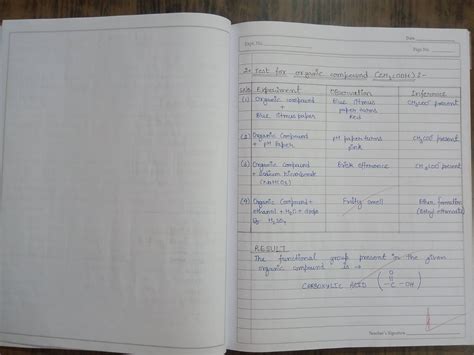 Date
Expt. No.
Expt. No.
Page No.
2→ Test for organic compound (CH3COOH):-
S.No. Experiment Observation Inference
(1) Organic compound + Blue litmus paper Blue litmus paper turns Red CH3COO⁻ present
(2) Organic Compound + pH Paper pH paper turns pink CH3COO⁻ present
(3) Organic compound + Sodium bicarbonate (NaHCO3) Brisk effervence CH3COO⁻ present
(4) Organic Compound + ethanol + H2O + drops of H2SO4 Fruity smell Ester formation
RESULT
The functional group present in the given
organic compound is →
CARBOXYLIC ACID (O -C-OH)
Teacher's Signature